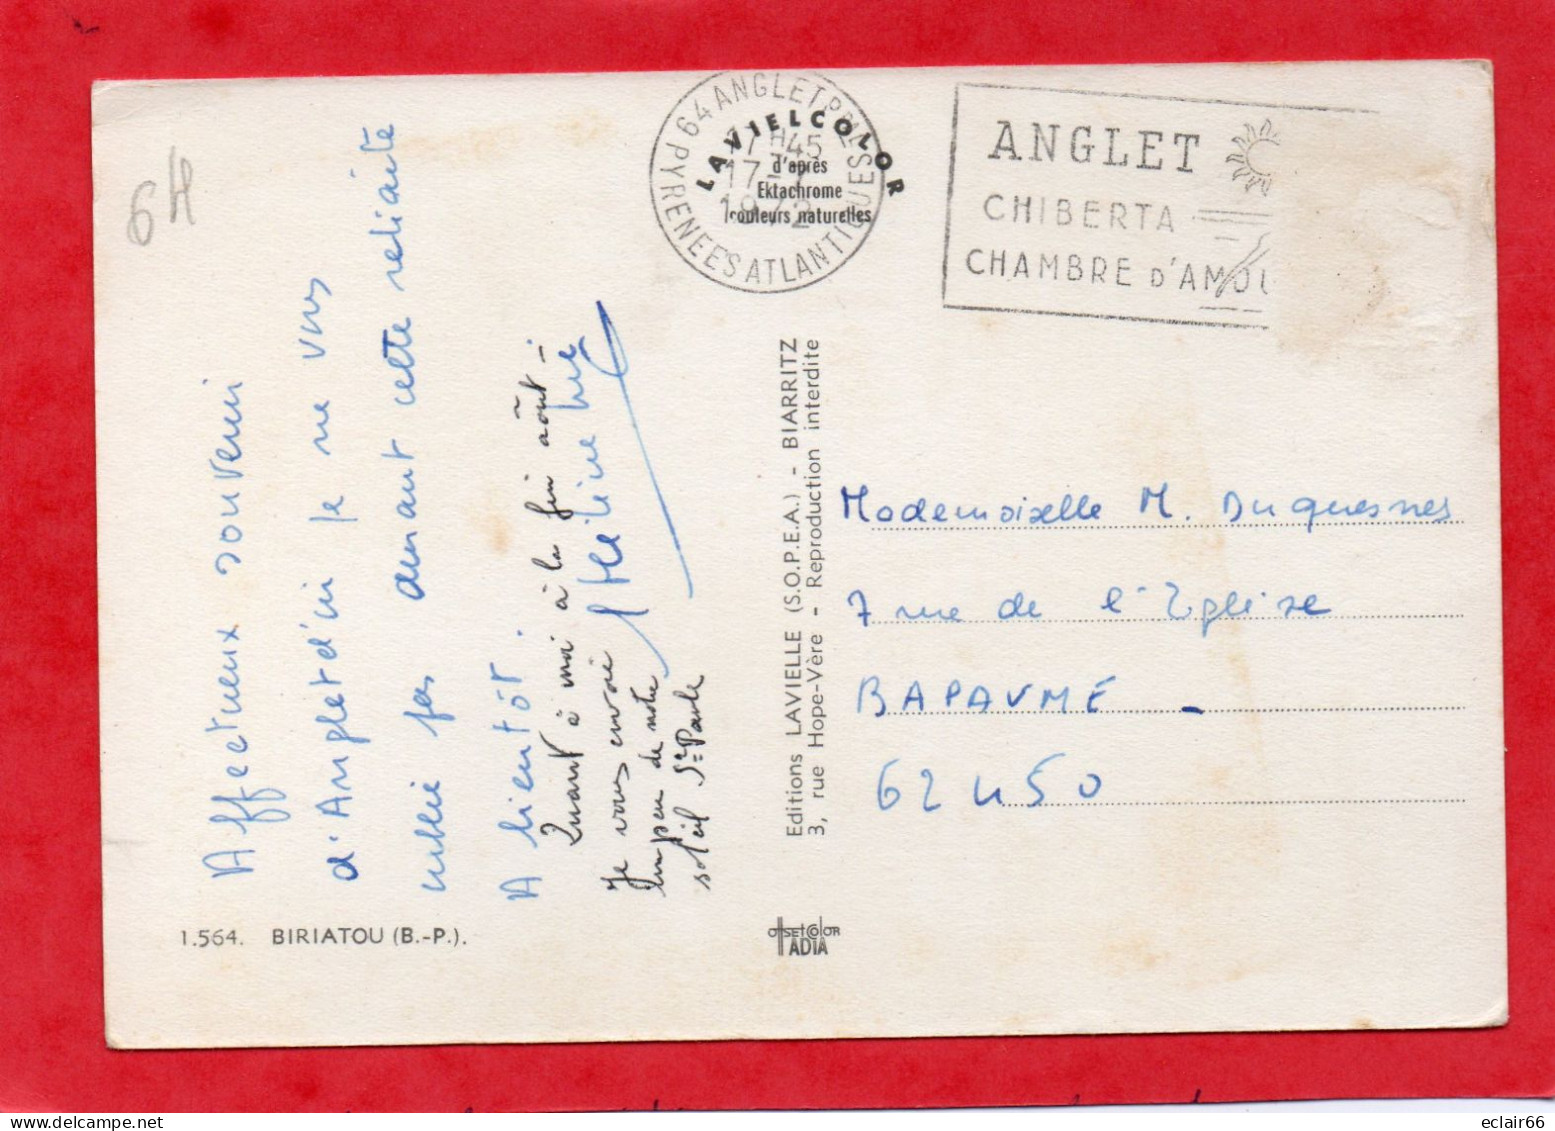 64
Affectueux souvenir
d'Anglet d'ici je ne vous
oublie pas durant cette
A bientôt.
Quant à moi à la fin août -
Je vous envoie
un peu de notre
soleil Sr Paule
1.564. BIRIATOU (B.-P.).
64 ANGLET PNEES
PYRENEES ATLANTIQUES
17H45
17-7
1972
LAVIELCOLOR
d'après
Ektachrome
couleurs naturelles
ANGLET
CHIBERTA
CHAMBRE D'AMOU
Editions LAVIELLE (S.O.P.E.A.) - BIARRITZ
3, rue Hope-Vère - Reproduction interdite
OFFSET COLOR
ADIA
Mademoiselle M. Duquesnes
7 rue de l'Eglise
BAPAUME -
62450
eclair66